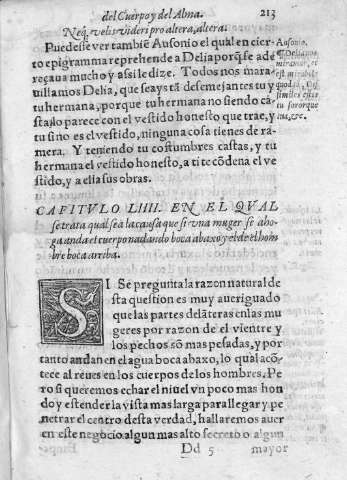 del Cuerpo y del Alma. 213
Neq; velis videri pro altera, altera.
Puedese ver tambiē Ausonio el qual en cier
to epigramma reprehende a Delia porq̃ se adé
reçaua mucho y assi le dize. Todos nos mara-
uillamos Delia, que seays tā desemejantes tu y
tu hermana, porque tu hermana no siendo ca-
sta lo parece con el vestido honesto que trae, y
tu sino es el vestido, ninguna cosa tienes de ra-
mera. Y teniendo tu costumbres castas, y tu
hermana el vestido honesto, a ti te cōdena el ve
stido, y a ella sus obras.
Ausonio.
Delia nos
miramur, et
est mirabile
quod tā dis
similes estis
tu sororque
tua, &c.
CAPITVLO LIIII. EN EL QVAL
se trata qual sea la causa que si vna muger se aho-
ga anda el cuerpo nadando boca abaxo y el de el hom
bre boca arriba.
SI Se pregunta la razon natural de
sta question es muy aueriguado
que las partes delāteras en las mu
geres por razon de el vientre y
los pechos sō mas pesadas, y por
tanto andan en el agua boca abaxo, lo qual acō-
tece al reues en los cuerpos de los hombres. Pe
ro si queremos echar el niuel vn poco mas hon
do y estender la vista mas larga para llegar y pe
netrar el centro desta verdad, hallaremos auer
en este negocio algun mas alto secreto o algun
Dd 5 mayor